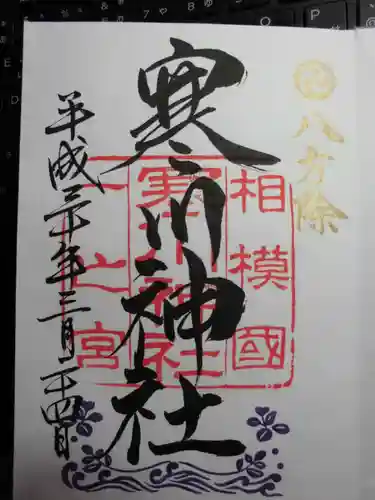 八方除
相模國
寒川神社
寒川神社
一之宮
平成三十年三月二十四日